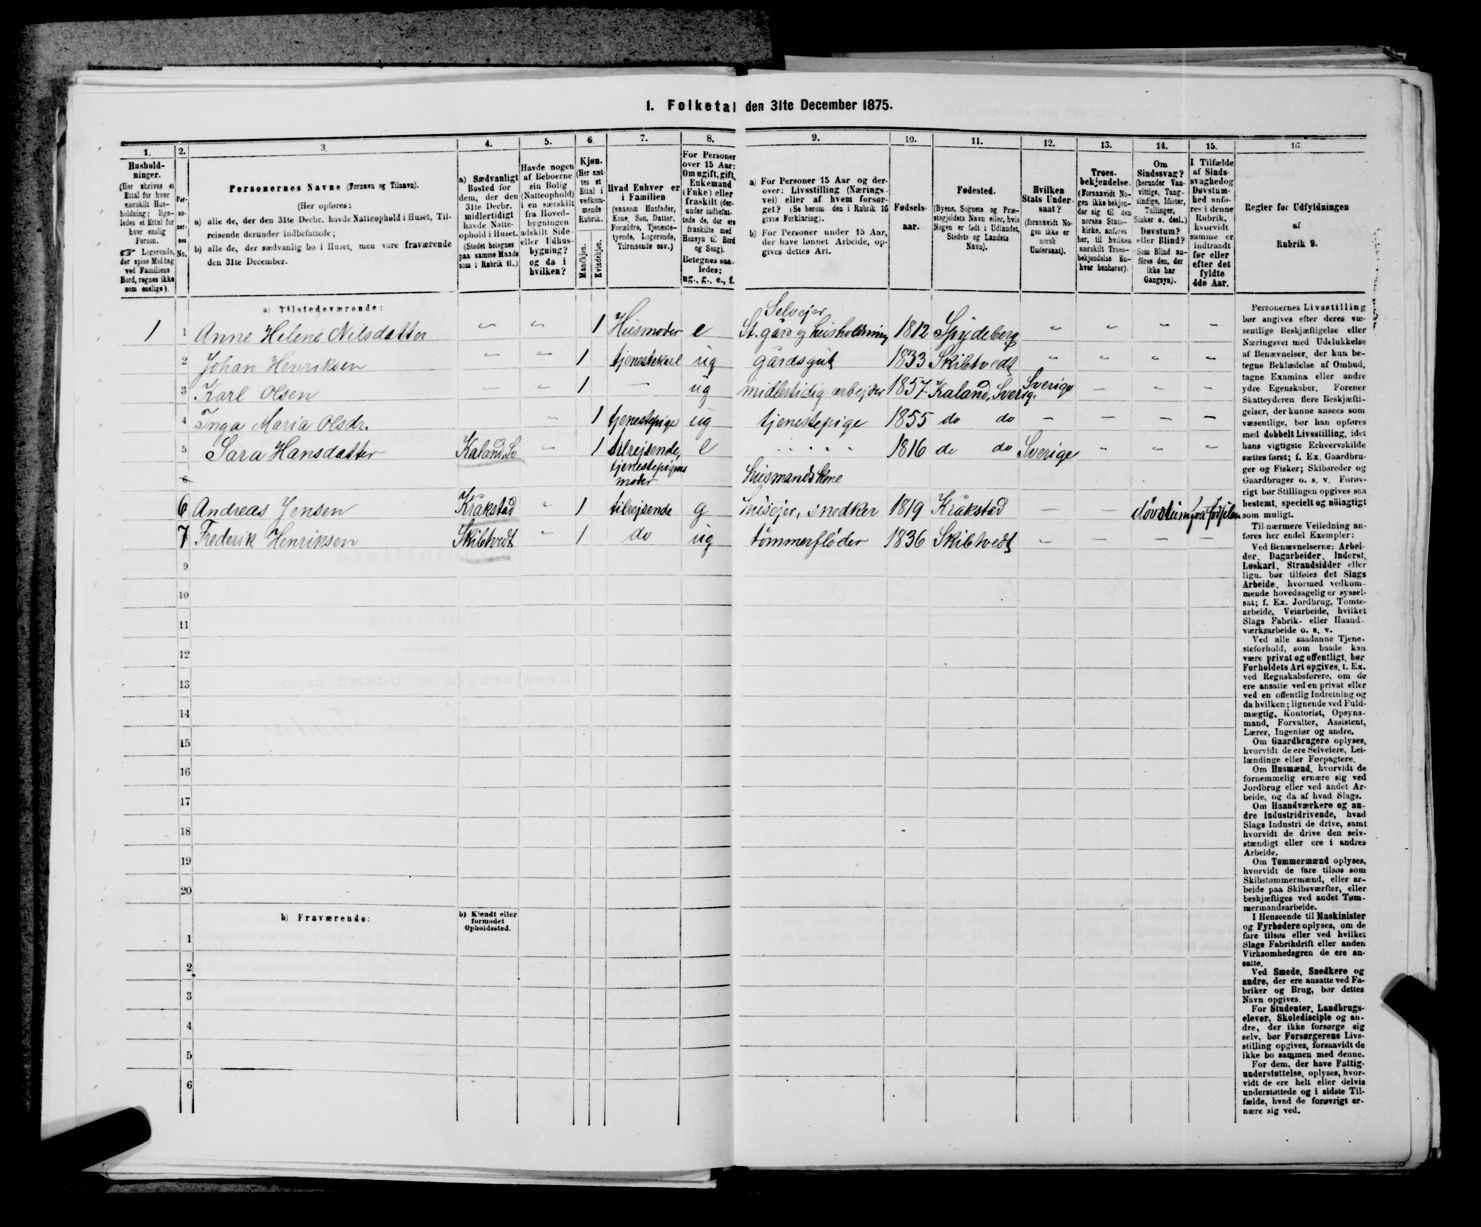 1. Folketal den 31te December 1875.
1.
Hushold-
ninger.
(Her skrives et
Ettal for hver
særskilt Hus-
holdning; lige-
ledes et Ettal for
hver enslig
Person.
Logerende,
der spise Middag
ved Familiens
Bord, regnes ikke
som enslige).
2.
Per-
so-
ner-
nes
No.
3.
Personernes Navne (Fornavn og Tilnavn).
(Her opføres:
a) alle de, der den 31te Decbr. havde Natteophold i Huset, Til-
reisende derunder indbefattede;
b) alle de, der sædvanlig bo i Huset, men vare fraværende
den 31te December.
4.
a) Sædvanligt
Bosted for
dem, der den
31te Decbr.
midlertidigt
havde Natte-
ophold i Huset.
(Stedet betegnes
paa samme Maade
som i Rubrik 11.)
5.
Havde nogen
af Beboerne
sin Bolig
(Natteophold)
i en særskilt
fra Hoved-
bygningen
adskilt Side-
eller Udhus-
bygning?
og da i
hvilken?
6.
Kjøn.
(Her sæt-
tes et
Ettal i
vedkom-
mende
Rubrik.)
Mandkjøn.
Kvindekjøn.
7.
Hvad Enhver er
i Familien
(saasom Husfader,
Kone, Søn, Datter,
Forældre, Tjeneste-
tyende, Logerende,
Tilreisende osv.)
8.
For Personer
over 15 Aar:
Om ugift, gift,
Enkemand
(Enke) eller
fraskilt (der-
under indbefat-
tede de, der ere
fraskilte med
Hensyn til Bord
og Seng).
Betegnes saa-
ledes:
ug., g., e., f.
9.
a) For Personer 15 Aar og der-
over: Livsstilling (Nærings-
vei) eller af hvem forsør-
get? (Se herom den i Rubrik 16
givne Forklaring).
b) For Personer under 15 Aar,
der have lønnet Arbeide, op-
gives dettes Art.
10.
Fødsels-
aar.
11.
Fødested.
(Byens, Sognets og Præ-
stegjeldets Navn eller, hvis
Nogen er født i Udlandet,
Stedets og Landets
Navn).
12.
Hvilken
Stats Under-
saat?
(forsaavidt No-
gen ikke er
norsk
Undersaat).
13.
Troes-
bekjendelse.
(Forsaavidt No-
gen ikke bekjen-
der sig til den
norske Stats-
kirke, anføres
her, til hvilken
særskilt Troes-
bekjendelse En-
hver henhører).
14.
Om
Sindssvag?
(herunder Van-
vittige, Tung-
sindige, Idioter,
Tullinger,
Sinker o. desl.)
Døvstum?
eller Blind?
(Som Blind an-
føres den, der
ikke har
Gangsyn).
15.
I Tilfælde
af Sinds-
svaghed og
Døvstum-
hed anfø-
res i denne
Rubrik,
hvorvidt
samme er
indtraadt
før eller
efter det
fyldte
4de Aar.
16.
Regler før Udfyldningen
af
Rubrik 9.
a) Tilstedeværende:
1 1 Anne Helene Nilsdatter " " 1 Husmoder e Selvejer St. gård og husholdning 1812 Spydeberg " " " "
2 Johan Henriksen " " 1 tjenestekarl ug gårdsgut 1833 Skibtvedt " " " "
3 Karl Olsen — " 1 — ug midlertidig arbejder 1857 Kaland, Sverig. Sverige — — —
4 Inga Maria Olsdr. " 1 tjenestepige ug tjenestepige 1855 do do " — — —
5 Sara Hansdatter Kaland, Sv " 1 tilrejsende, tjenestepigens moder e " " " " 1816 do do Sverige " " "
6 Andreas Jensen Kråkstad " 1 tilrejsende g husmandskone husejer, snedker 1819 Kråkstad — — døvstum
7 Frederik Henriksen Skibtvedt " 1 do ug tømmerfløder 1836 Skibtvedt — — — —
9
10
11
12
13
14
15
16
17
18
19
20
b) Fraværende:
b) Kjendt eller
formodet
Opholdssted.
1
2
3
4
5
6
Personernes Livsstilling
bør angives efter deres væ-
sentlige Beskjæftigelse eller
Næringsvei med Udelukkelse
af Benævnelser, der kun be-
tegne Beklædelse af Ombud,
tagne Examina eller andre
ydre Egenskaber. Forener
Skatteyderen flere Beskjæfti-
gelser, der kunne ansees som
væsentlige, bør han opføres
med dobbelt Livsstilling, idet
hans vigtigste Erhvervskilde
sættes først; f. Ex. Gaardbru-
ger og Fisker; Skibsreder og
Gaardbruger o. s. v. Forøv-
rigt bør Stillingen opgives saa
bestemt, specielt og nøiagtigt
som muligt.
Til nærmere Veiledning an-
føres her endel Exempler:
Ved Benævnelserne: Arbei-
der, Dagarbeider, Inderst,
Løskarl, Strandsidder eller
lign. bør tilføies det Slags
Arbeide, hvormed vedkom-
mende hovedsagelig er syssel-
sat; f. Ex. Jordbrug, Tomte-
arbeide, Veiarbeide, hvilket
Slags Fabrik- eller Haand-
værksarbeide o. s. v.
Ved alle saadanne Tjene-
steforhold, som baade kan
være privat og offentligt, bør
Forholdets Art opgives, t. Ex.
ved Regnskabsførere, om de
ere ansatte ved en privat eller
ved en offentlig Indretning og
da hvilken; lignende ved Fuld-
mægtig, Kontorist, Opsyns-
mand, Forvalter, Assistent,
Lærer, Ingeniør og andre.
Om Gaardbrugere oplyses,
hvorvidt de ere Selveiere, Lei-
lændinge eller Forpagtere.
Om Husmænd, hvorvidt de
fornemmelig ernære sig ved
Jordbrug eller ved andet Ar-
beide, og da af hvad Slags.
Om Haandværkere og an-
dre Industridrivende, hvad
Slags Industri de drive, samt
hvorvidt de drive den selv-
stændigt eller ere i andres
Arbeide.
Om Tømmermænd oplyses,
hvorvidt de fare tilsøs som
Skibstømmermænd, eller ar-
beide paa Skibsværfter, eller
beskjæftiges ved andet Tøm-
mermandsarbeide.
I Henseende til Maskinister
og Fyrbødere oplyses, om de
fare tilsøs eller ved hvilket
Slags Fabrikdrift eller anden
Virksomhedsgren de ere an-
satte.
Ved Smede, Snedkere og
andre, der ere ansatte ved Fa-
briker og Brug, bør dettes
Navn opgives.
For Studenter, Landbrugs-
elever, Skoledisciple og an-
dre, der ikke forsørge sig
selv, bør Forsørgerens Livs-
stilling opgives, forsaavidt de
ikke bo sammen med denne.
For dem, der have Fattig-
understøttelse, oplyses, hvor-
vidt de ere helt eller delvis
understøttede og i sidste Til-
fælde, hvad de forøvrigt er-
nære sig ved.